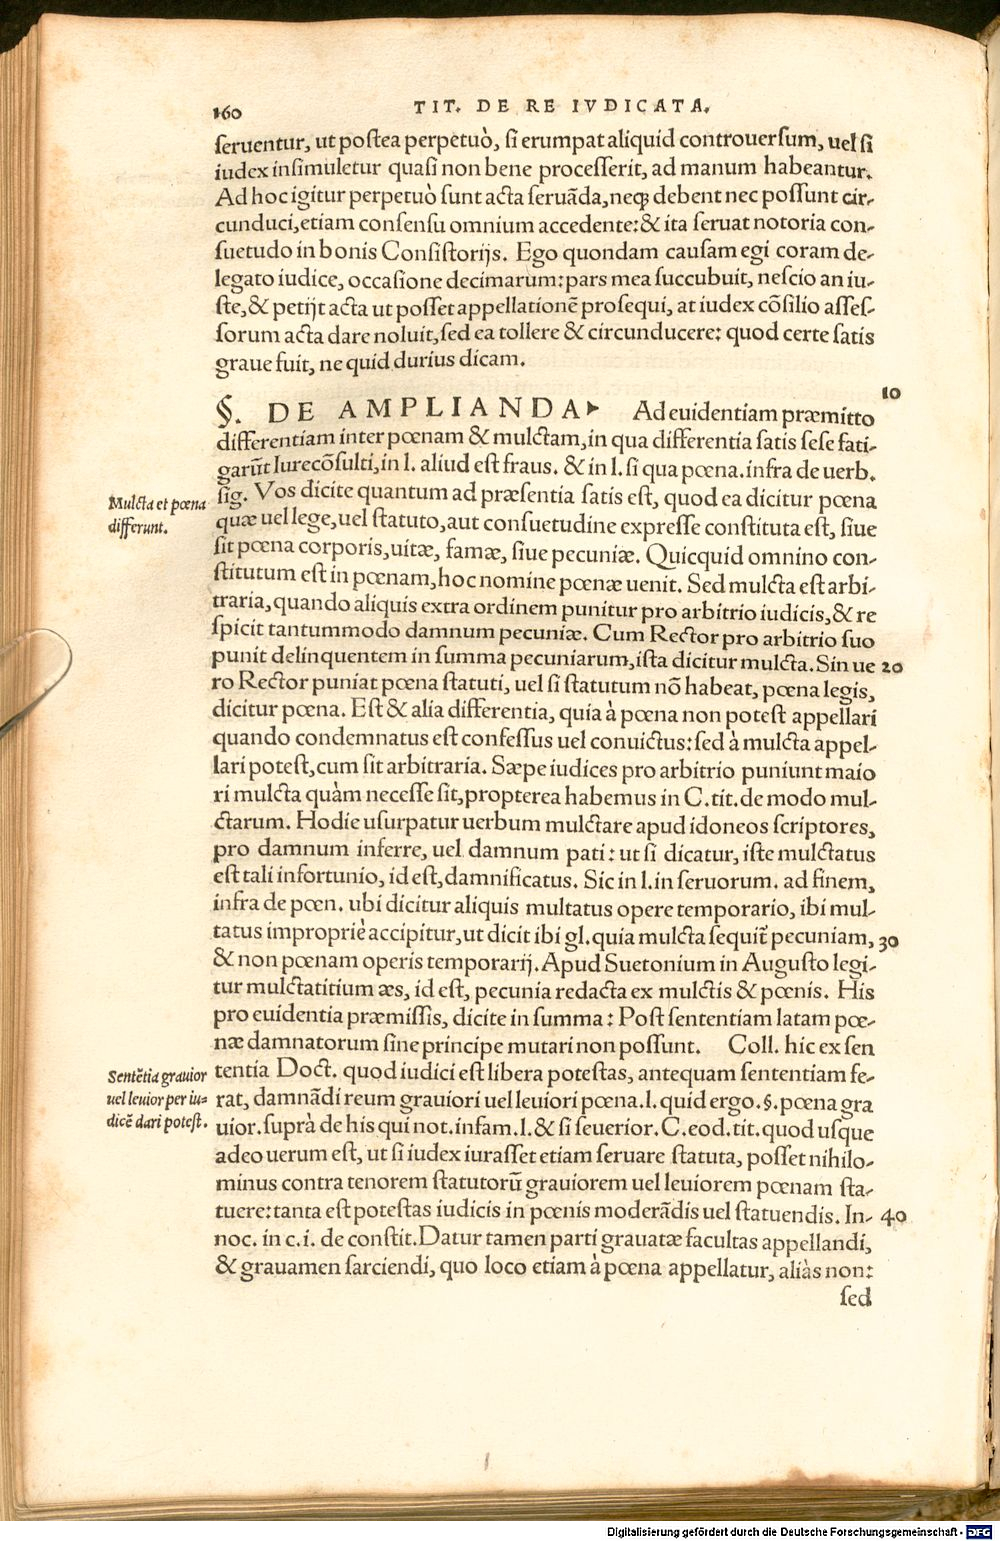 160
TIT. DE RE IVDICATA.
ſeruentur, ut poſtea perpetuò, ſi erumpat aliquid controuerſum, uel ſi
iudex inſimuletur quaſi non bene proceſſerit, ad manum habeantur.
Ad hoc igitur perpetuò ſunt acta ſeruãda, neqꝫ debent nec poſſunt cir-
cunduci, etiam conſenſu omnium accedente: & ita ſeruat notoria con-
ſuetudo in bonis Conſiſtorijs. Ego quondam cauſam egi coram de-
legato iudice, occaſione decimarum: pars mea ſuccubuit, neſcio an iu-
ſte, & petijt acta ut poſſet appellationẽ proſequi, at iudex cõſilio aſſeſ-
ſorum acta dare noluit, ſed ea tollere & circunducere: quod certe ſatis
graue fuit, ne quid durius dicam.
10
§. DE AMPLIANDA▸ Ad euidentiam præmitto
differentiam inter pœnam & mulctam, in qua differentia ſatis ſeſe fati-
garũt Iurecõſulti, in l. aliud eſt fraus. & in l. ſi qua pœna. infra de uerb.
ſig. Vos dicite quantum ad præſentia ſatis eſt, quod ea dicitur pœna
Mulcta et pœna
differunt.
quæ uel lege, uel ſtatuto, aut conſuetudine expreſſe conſtituta eſt, ſiue
ſit pœna corporis, uitæ, famæ, ſiue pecuniæ. Quicquid omnino con-
ſtitutum eſt in pœnam, hoc nomine pœnæ uenit. Sed mulcta eſt arbi-
traria, quando aliquis extra ordinem punitur pro arbitrio iudicis, & re
ſpicit tantummodo damnum pecuniæ. Cum Rector pro arbitrio ſuo
punit delinquentem in ſumma pecuniarum, iſta dicitur mulcta. Sin ue 20
ro Rector puniat pœna ſtatuti, uel ſi ſtatutum nõ habeat, pœna legis,
dicitur pœna. Eſt & alia differentia, quia à pœna non poteſt appellari
quando condemnatus eſt confeſſus uel conuictus: ſed à mulcta appel-
lari poteſt, cum ſit arbitraria. Sæpe iudices pro arbitrio puniunt maio
ri mulcta quàm neceſſe ſit, propterea habemus in C. tit. de modo mul-
ctarum. Hodie uſurpatur uerbum mulctare apud idoneos ſcriptores,
pro damnum inferre, uel damnum pati: ut ſi dicatur, iſte mulctatus
eſt tali infortunio, id eſt, damnificatus. Sic in l. in ſeruorum. ad finem,
infra de pœn. ubi dicitur aliquis multatus opere temporario, ibi mul-
tatus impropriè accipitur, ut dicit ibi gl. quia mulcta ſequit̃ pecuniam, 30
& non pœnam operis temporarij. Apud Suetonium in Auguſto legi-
tur mulctatitium æs, id eſt, pecunia redacta ex mulctis & pœnis. His
pro euidentia præmiſſis, dicite in ſumma: Poſt ſententiam latam pœ-
næ damnatorum ſine principe mutari non poſſunt. Coll. hic ex ſen
Sentẽtia grauior
uel leuior per iu-
dicẽ dari poteſt.
tentia Doct. quod iudici eſt libera poteſtas, antequam ſententiam fe-
rat, damnãdi reum grauiori uel leuiori pœna. l. quid ergo. §. pœna gra
uior. ſuprà de his qui not. infam. l. & ſi ſeuerior. C. eod. tit. quod uſque
adeo uerum eſt, ut ſi iudex iuraſſet etiam ſeruare ſtatuta, poſſet nihilo-
minus contra tenorem ſtatutorũ grauiorem uel leuiorem pœnam ſta-
tuere: tanta eſt poteſtas iudicis in pœnis moderãdis uel ſtatuendis. In- 40
noc. in c. i. de conſtit. Datur tamen parti grauatæ facultas appellandi,
& grauamen ſarciendi, quo loco etiam à pœna appellatur, aliàs non:
ſed
Digitalisierung gefördert durch die Deutsche Forschungsgemeinschaft - DFG